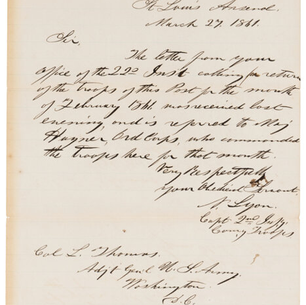 St Louis Arsenal
March 27 1861.
Sir,
The letter from your
office of the 22d Inst calling for return
of the troops of this Post for the month
of February 1861 was received last
evening, and is referred to Maj
Hagner, Ord Corps, who commanded
the troops here for that month.
Very Respectfully
Your Obedient Servant
N. Lyon.
Capt 2nd Infy.
Comg Troops
Col L. Thomas.
Adjt Genl U. S. Army,
Washington
D.C.